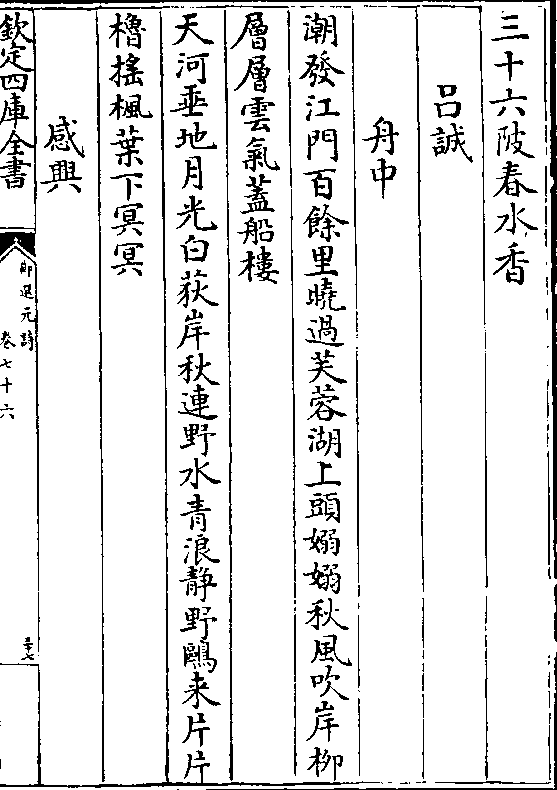 三十六陂春水香
吕誠
舟中
潮發江門百餘里曉過芙蓉湖上頭嫋嫋秋風吹岸柳
層層雲氣蓋船樓
天河垂地月光白荻岸秋連野水青浪靜野鷗来片片
櫓揺楓葉下冥冥
感興
欽定四庫全書
御選元詩
卷七十六
三十七